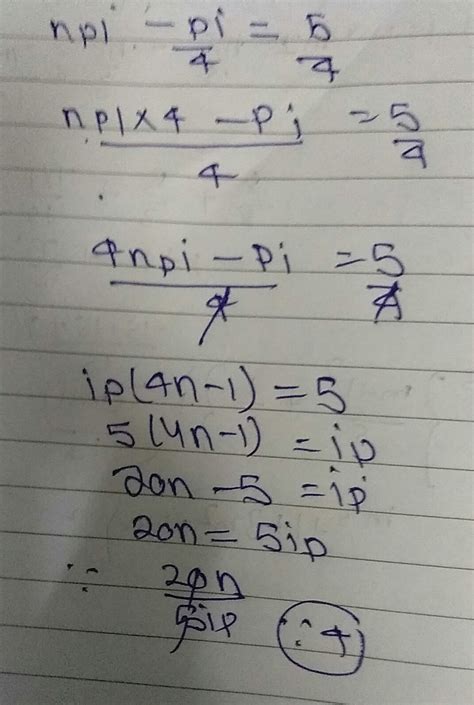 npi - pi/4 = 5/4
npi×4 - pi/4 = 5/4
4npi - pi/4 = 5/4
ip(4n-1) = 5
5(4n-1) = ip
20n - 5 = ip
20n = 5ip
∵ 20n/5ip ∴ 4